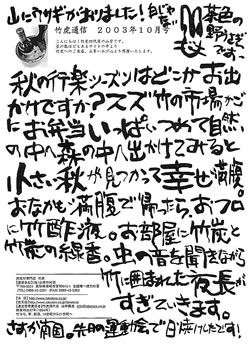 山にウサギがおりました！白じゃない
茶色の
野うさぎ
です
竹虎通信　2003年10月号
秋の行楽シーズンはどこかお出
かけですか？スズ竹の市場かご
にお弁当いっぱいつめて自然
の中へ森の中へ出かけてみると
小さい秋が見つかって幸せ満腹
おなかも満腹で帰ったら、おフロ
に竹酢液。お部屋に竹炭と
竹炭の線香。虫の音を聞きながら
竹に囲まれた夜長が
すぎていきます。
さすが南国、先日の運動会で日焼けしたです！